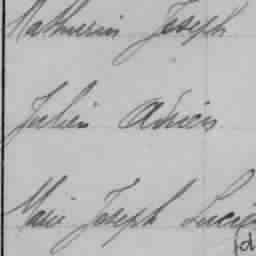 Mathurin Joseph
Julien Adrien
Marie Joseph Lucie
(d